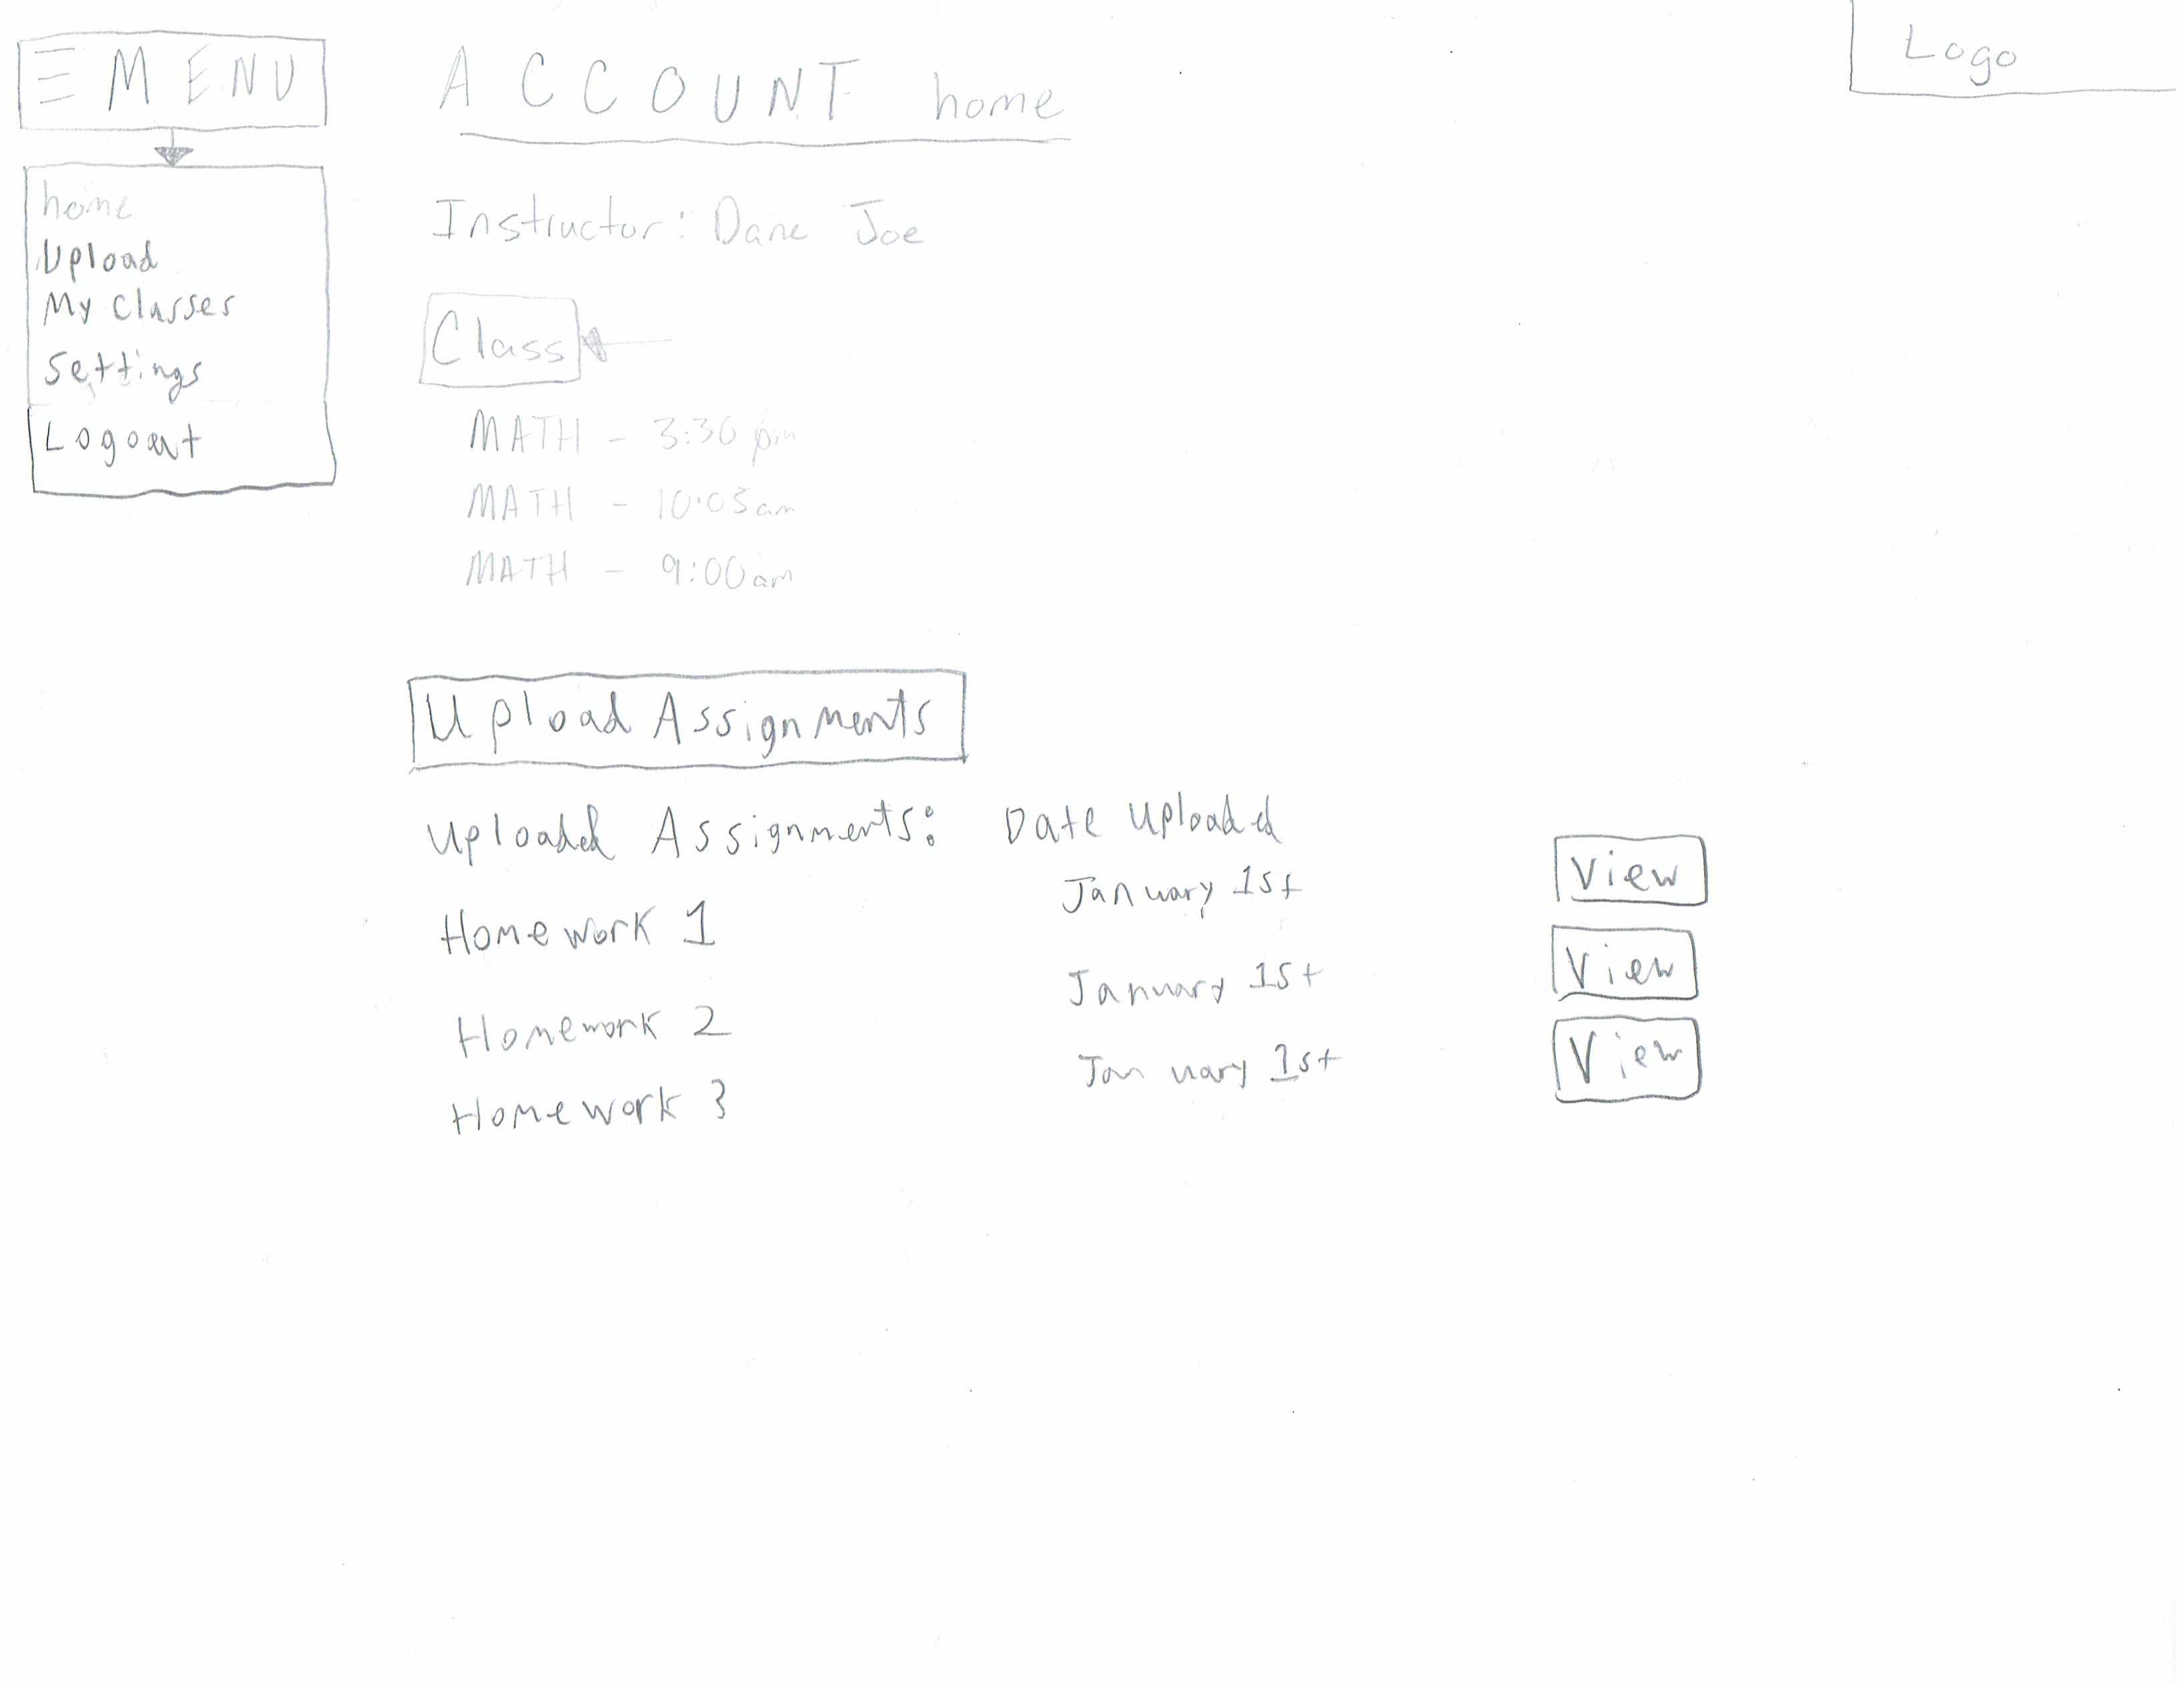 MENU
ACCOUNT home
Logo
home
Upload
My Classes
Settings
Logout
Instructor: Dane Joe
Class
MATH - 3:30 pm
MATH - 10:05am
MATH - 9:00am
Upload Assignments
Uploaded Assignments: Date Uploaded
Homework 1 January 1st View
Homework 2 January 1st View
Homework 3 January 1st View